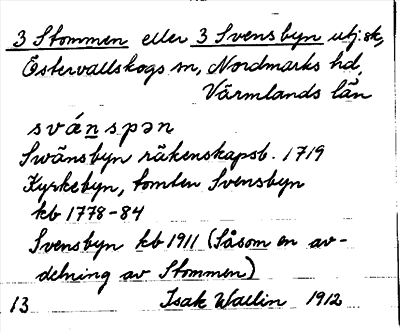 3 Stommen eller 3 Svensbyn utj:sk,
Östervallskogs sn, Nordmarks hd,
Värmlands län
svánspən
Swänsbyn räkenskapsb. 1719
Kyrkebyn, tomten Svensbyn
kb 1778-84
Svensbyn kb 1911 (Såsom en av-
delning av Stommen)
13 Isak Wallin 1912